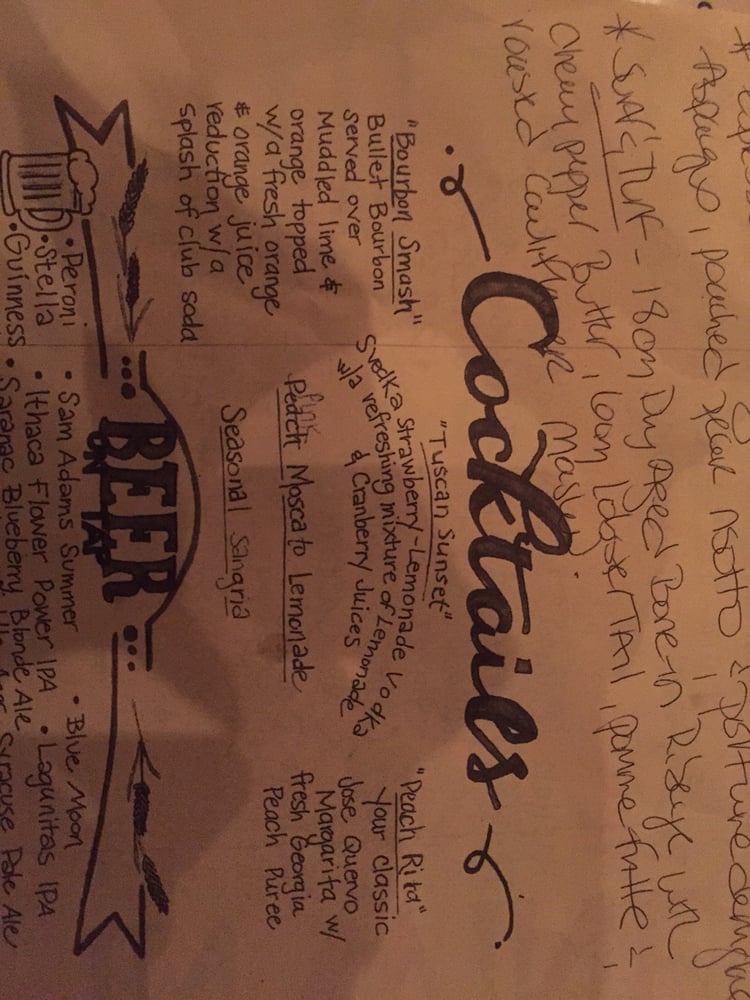 Asparagus, poached pear risotto & port wine demiglace
* SURF & TURF - 18oz Dry Aged Bone-in Ribeye with
Cherry pepper Butter, 6oz Lobster TAIL, pomme fritte &
roasted Cauliflower Mash.
Cocktails
"Bourbon Smash"
Bullet Bourbon
served over
Muddled lime &
orange topped
w/a fresh orange
& orange juice
reduction w/a
splash of club soda
"Tuscan Sunset"
Svedka Strawberry-Lemonade Vodka
w/a refreshing mixture of Lemonade
& Cranberry Juices
Pink Moscato Lemonade
Seasonal Sangria
"Peach Rita"
your classic
Jose Quervo
Margarita w/
fresh Georgia
Peach Puree
BEER
ON TAP
• Peroni
• Stella
• Guinness
• Sam Adams Summer
• Ithaca Flower Power IPA
• Saranac Blueberry Blonde Ale
• Blue Moon
• Lagunitas IPA
Syracuse Pale Ale